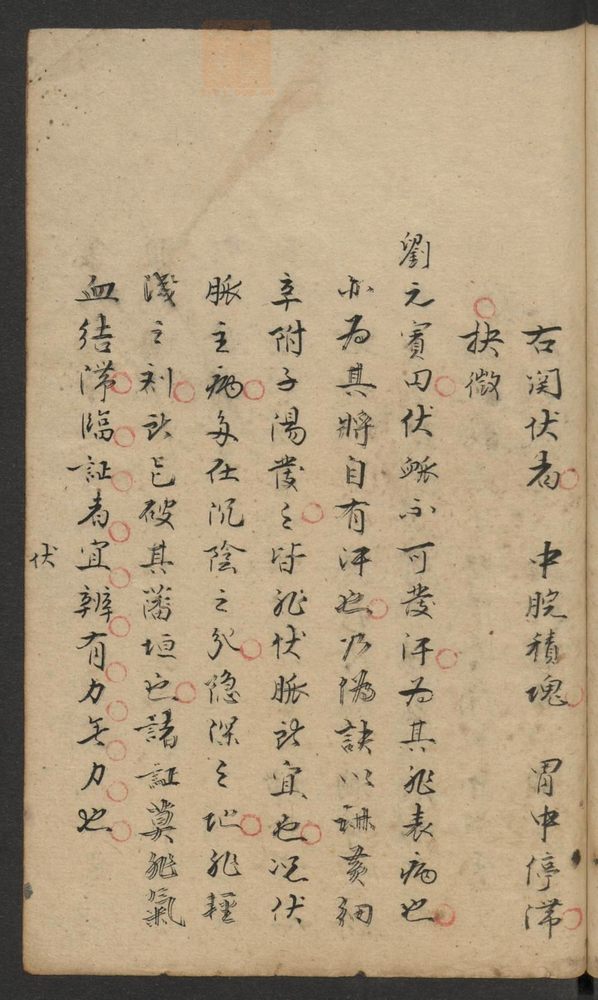 右関伏者 中脘積塊 胃中停滞
抉微
劉元賓曰伏脈不可發汗為其非表病也
亦為其將自有汗也乃偽訣以麻黃細
辛附子湯發之皆非伏脈所宜也况伏
脈主病多在沉陰之分隱深之地非輕
淺之剂所破其藩垣也諸証莫非氣
血結滯臨証者宜辨有力無力也
伏